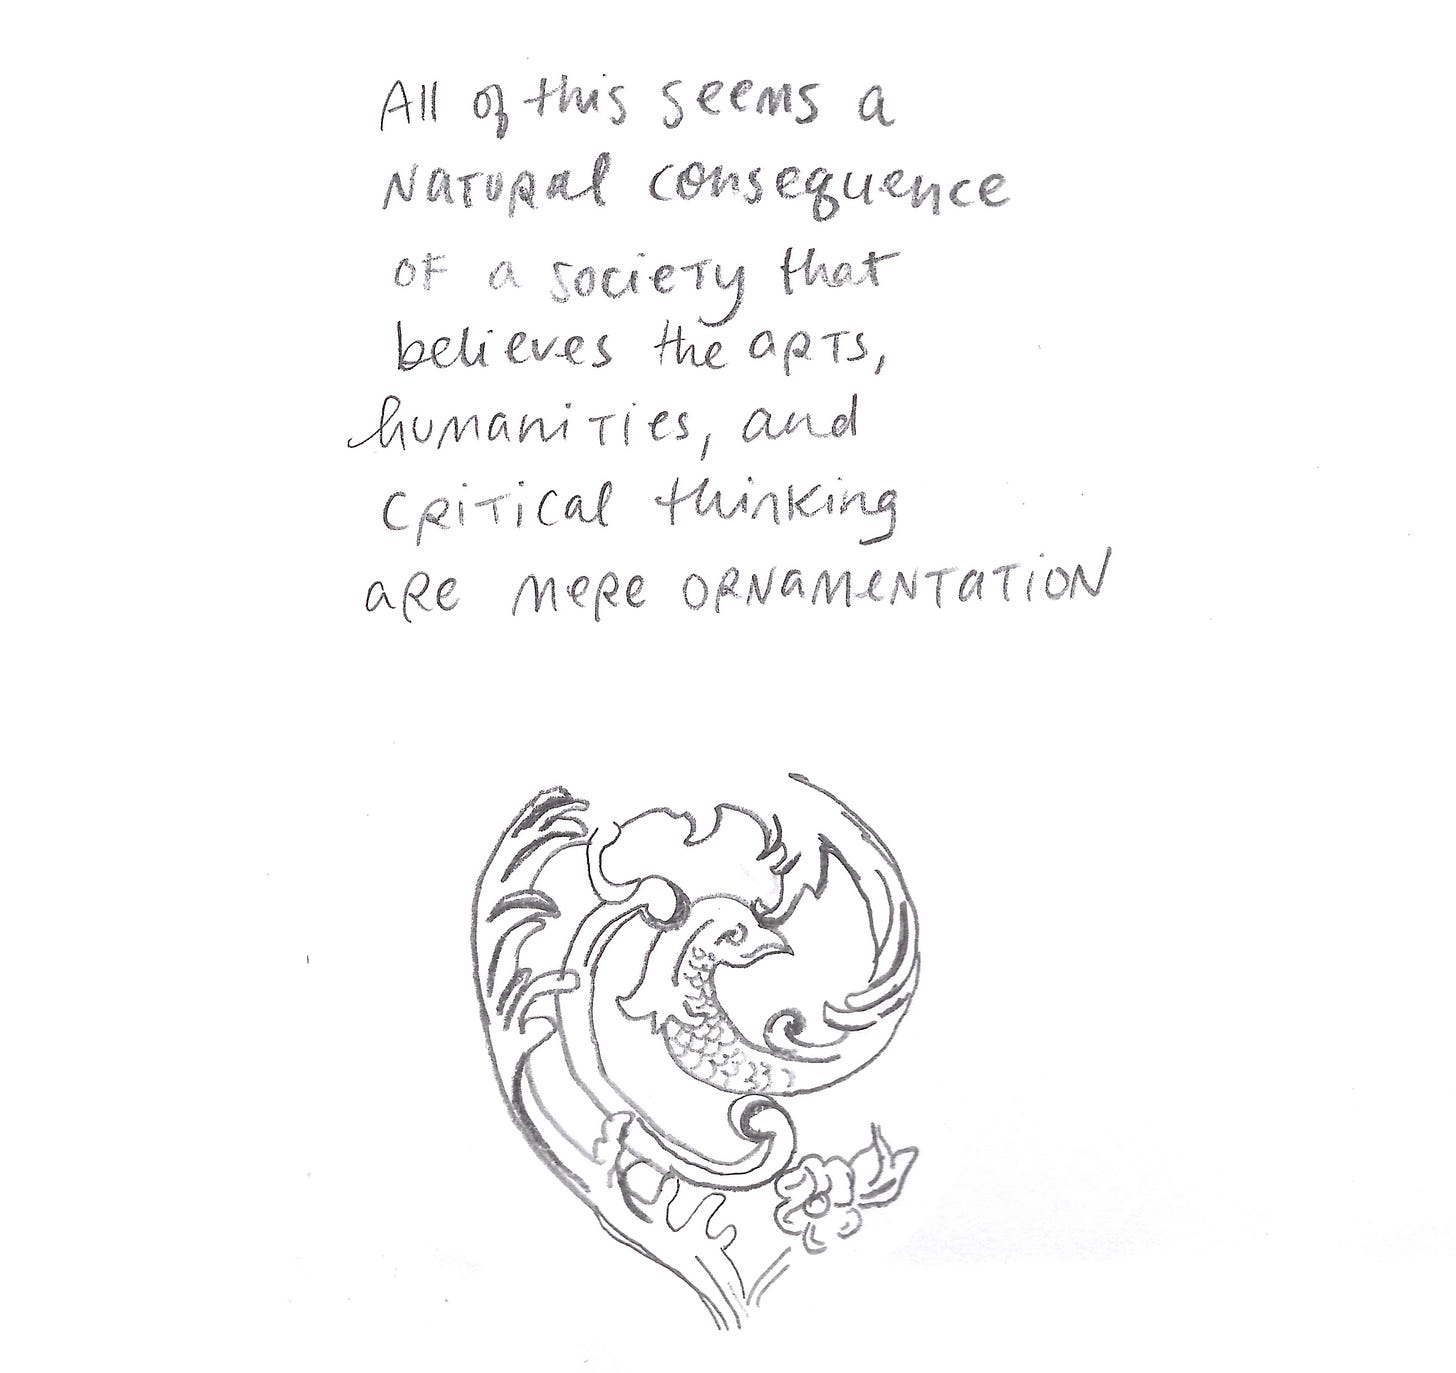 All of this seems a
NATURAL consequence
of a society that
believes the ARTS,
humanities, and
CRITICAL thinking
ARE MERE ORNAMENTATION